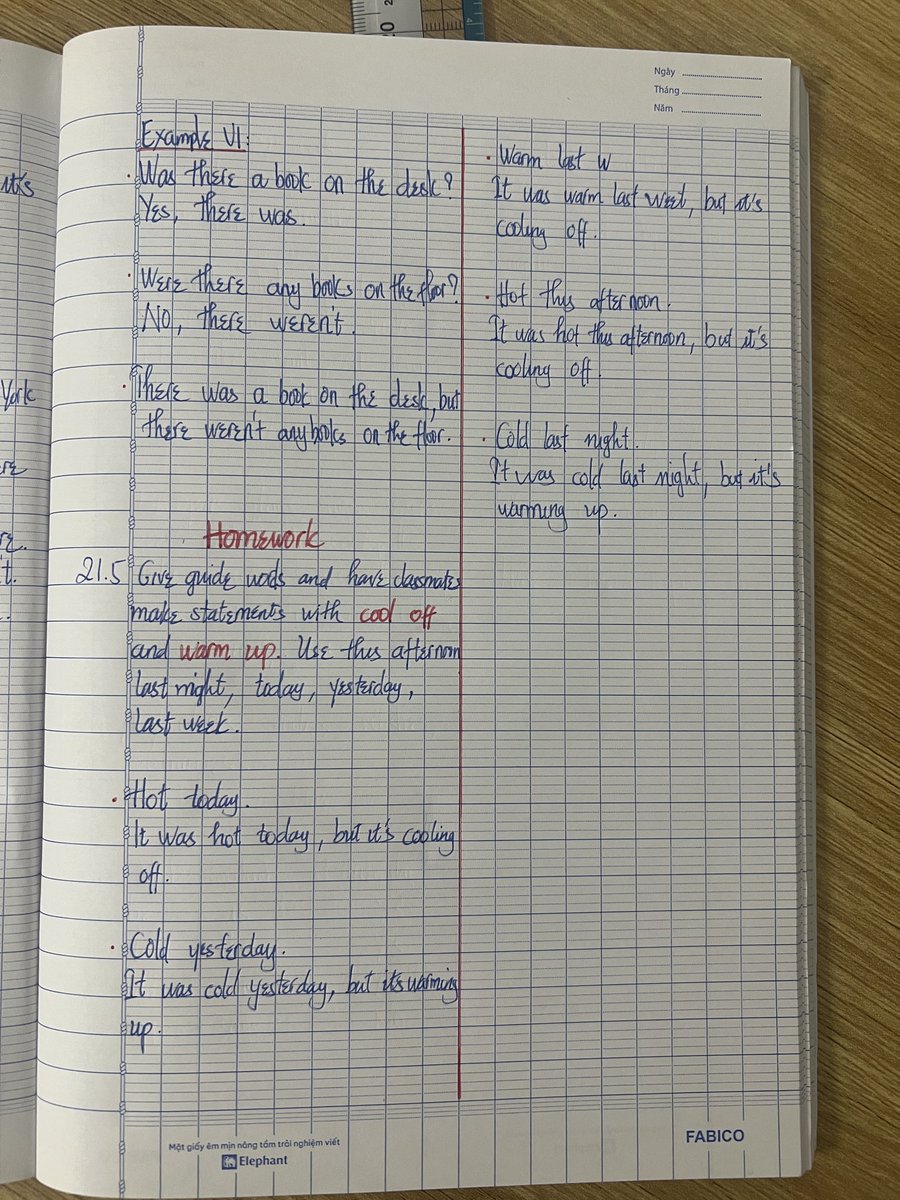 Ngày
Tháng
Năm
it's
York
Example VI:
Was there a book on the desk?
Yes, there was.
Were there any books on the floor?
No, there weren't.
There was a book on the desk, but
there weren't any books on the floor.
Homework
21.5 Give guide words and have classmates
make statements with cool off
and warm up. Use this afternoon
last night, today, yesterday,
last week.
Hot today.
It was hot today, but it's cooling
off.
Cold yesterday.
It was cold yesterday, but it's warming
up.
Warm last w
It was warm last week, but it's
cooling off.
Hot this afternoon.
It was hot this afternoon, but it's
cooling off.
Cold last night.
It was cold last night, but it's
warming up.
Mặt giấy êm mịn nâng tầm trải nghiệm viết
Elephant
FABICO